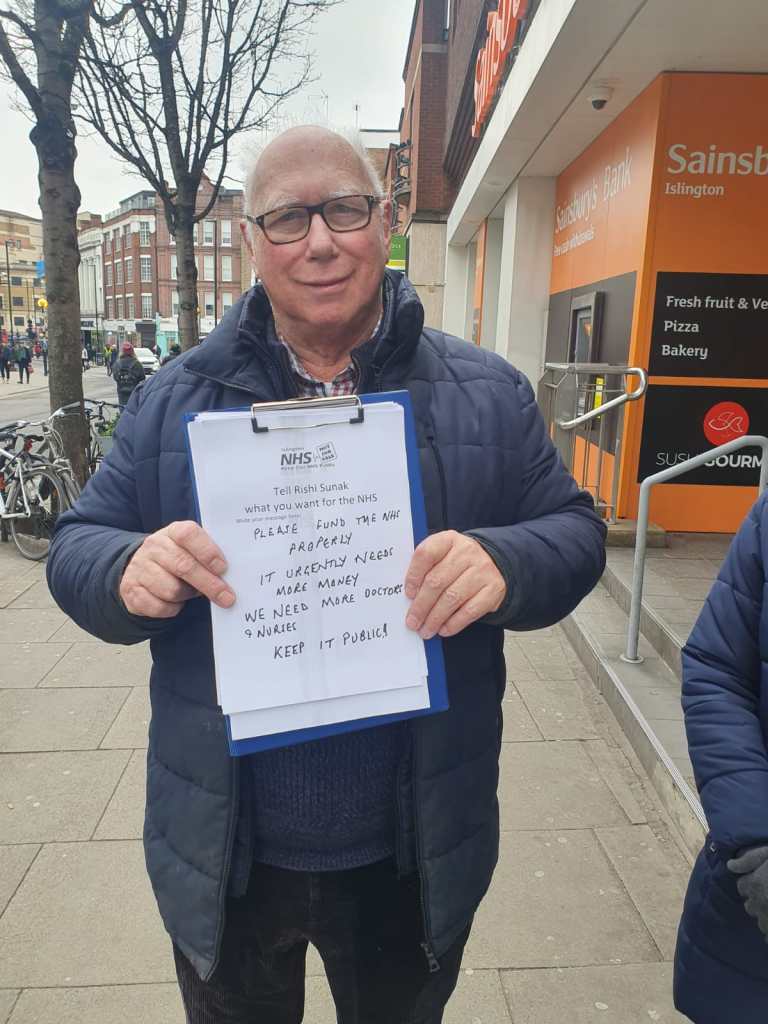 Sainsbu
Sainsbury's Bank
Free cash withdrawals
Sainsb
Islington
Fresh fruit & Ve
Pizza
Bakery
SUSHI GOURM
Islington
NHS
NOT FOR SALE
Keep Our NHS Public
Tell Rishi Sunak
what you want for the NHS
Write your message here:
PLEASE FUND THE NHS
PROPERLY
IT URGENTLY NEEDS
MORE MONEY
WE NEED MORE DOCTORS
& NURSES
KEEP IT PUBLIC!